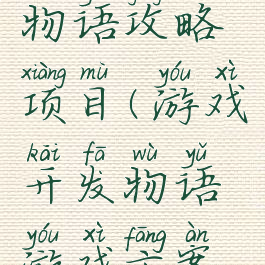 物语攻略
xiàng mù yóu xì
项目(游戏
kāi fā wù yǔ
开发物语
yóu xì fāng àn
游戏方案